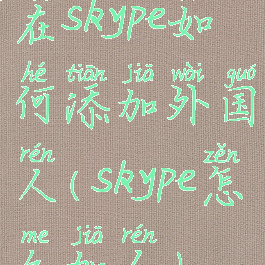 在skype如
hé tiān jiā wài guó
何添加外国
rén zěn
人(skype怎
me jiā rén
么加人)